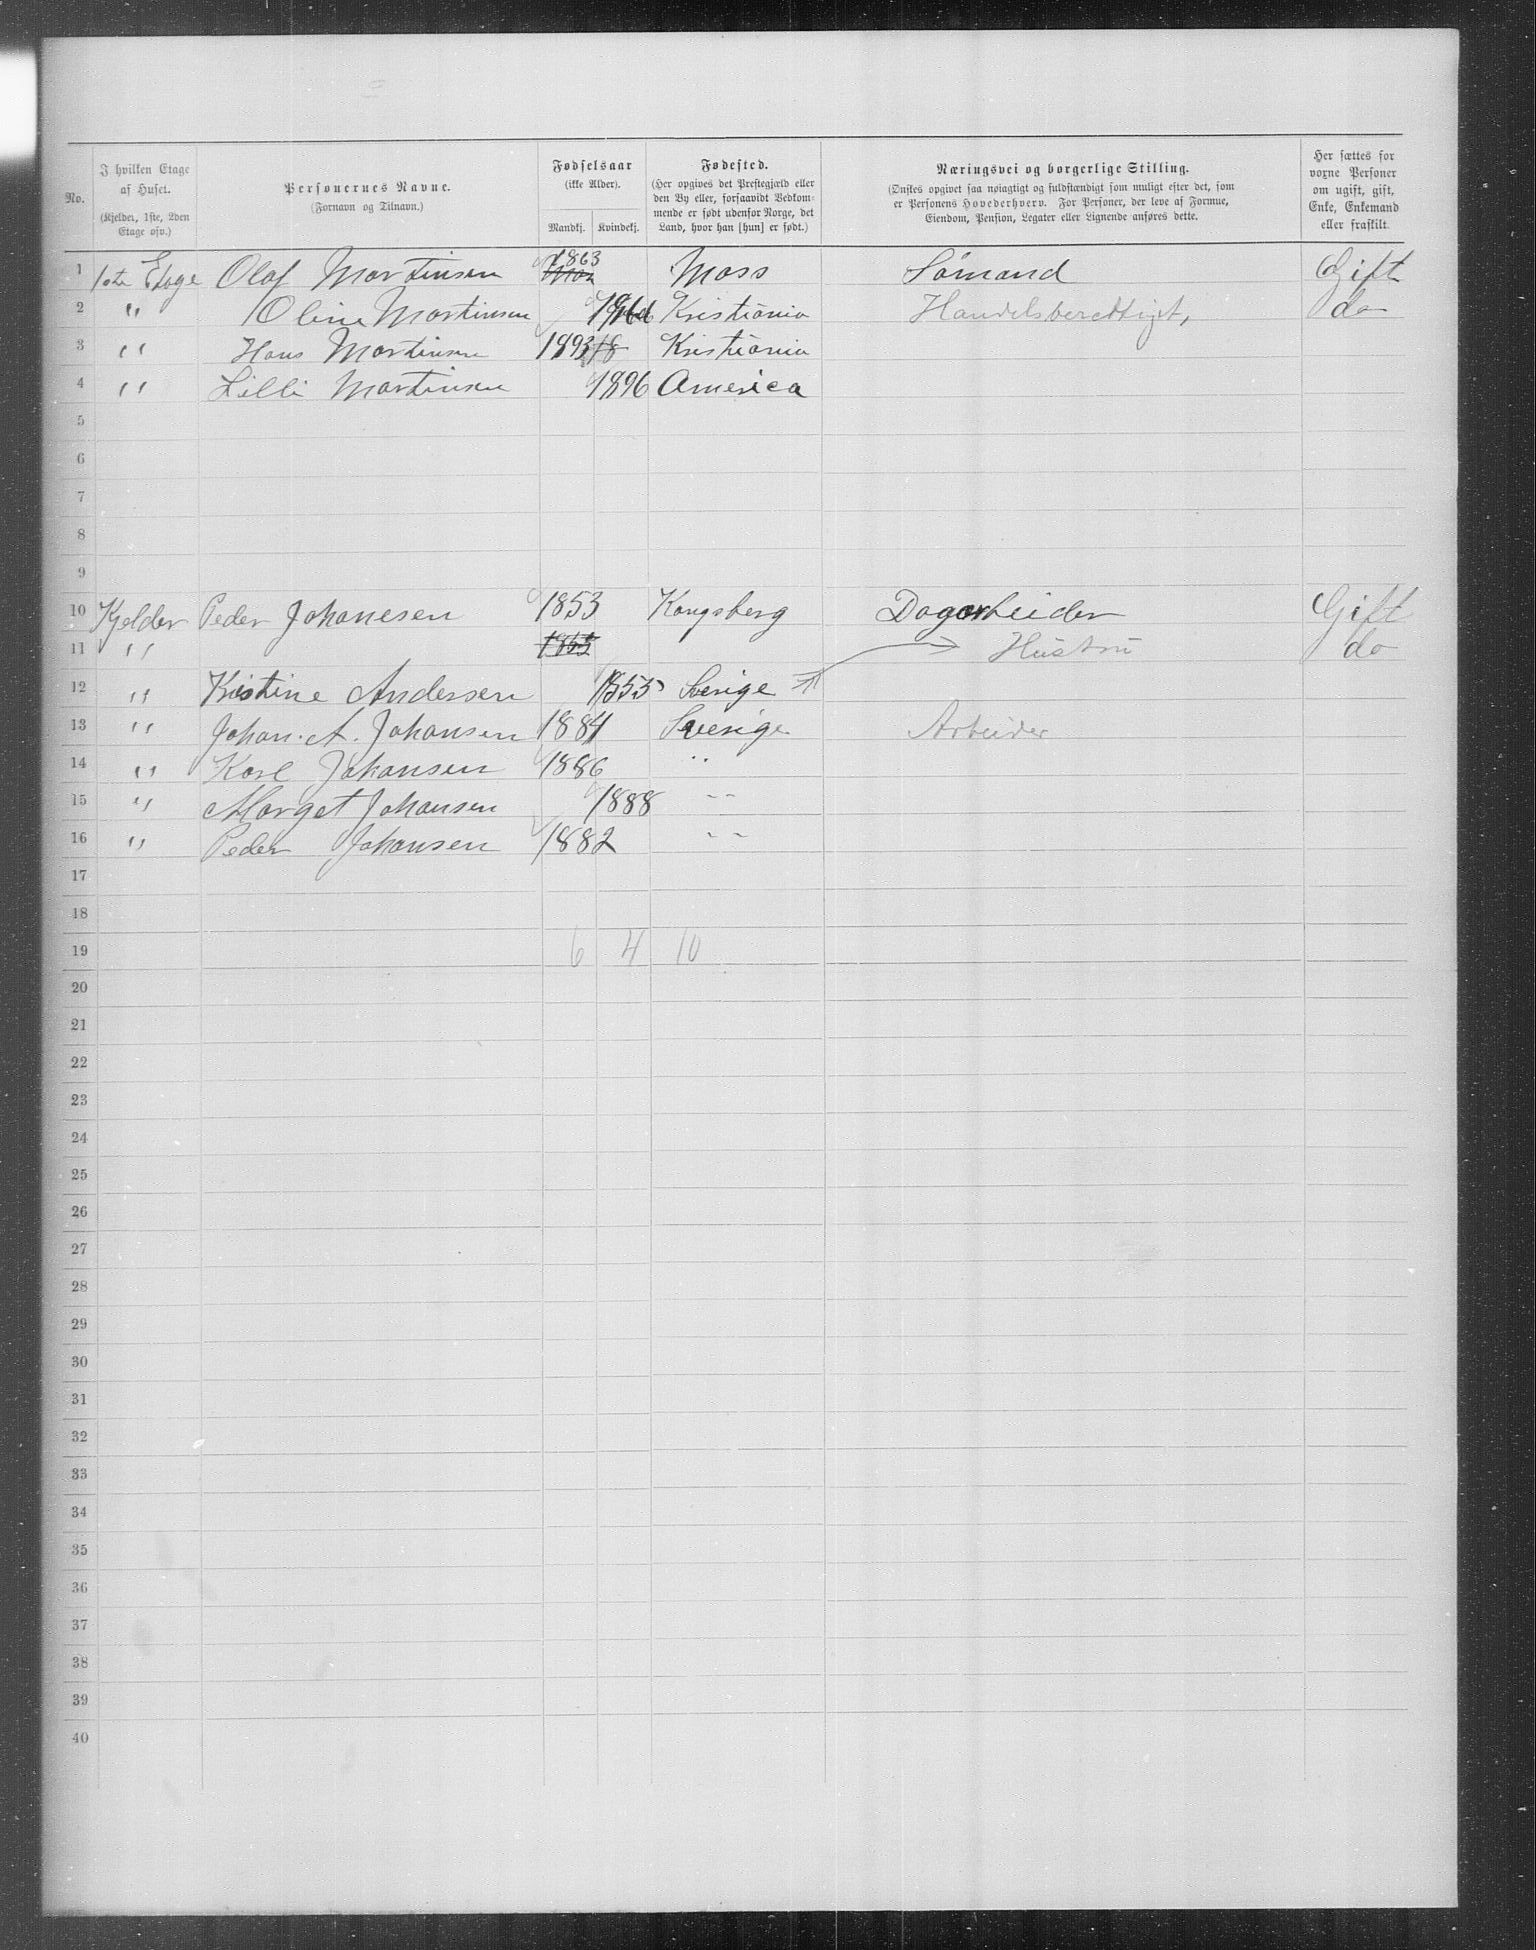 No.
I hvilken Etage af Huset. (Kjelder, 1ste, 2den Etage osv.)
Personernes Navne. (Fornavn og Tilnavn.)
Fødselsaar (ikke Alder). Mandkj. Kvindekj.
Fødested. (Her opgives det Prestegjæld eller den By eller, forsaavidt Vedkommende er født udenfor Norge, det Land, hvor han [hun] er født.)
Næringsvei og borgerlige Stilling. (Ønskes opgivet saa nøiagtigt og fuldstændigt som muligt efter det, som er Personens Hovederhverv. For Personer, der leve af Formue, Eiendom, Pension, Legater eller Lignende anføres dette.
Her sættes for voxne Personer om ugift, gift, Enke, Enkemand eller fraskilt.
1 1ste Etage Olaf Martinsen 1863 Moss Sömand Gift
2 " Oline Martinsen Kristiania Handelsberettiget, do
3 " Hans Martinsen 1893 Kristiania
4 " Lilli Martinsen 1896 America
5
6
7
8
9
10 Kjelder Peder Johanesen 1853 Kongsberg Dagarbeider Gift
11 " 1853 Hustru do
12 " Kristine Andersen 1855 Sverige
13 " Johan. A. Johansen 1884 Sverige Arbeider
14 " Karl Johansen 1886 "
15 " Marget Johansen 1888 "
16 " Peder Johansen 1882 "
17
18
19 6 4 10
20
21
22
23
24
25
26
27
28
29
30
31
32
33
34
35
36
37
38
39
40